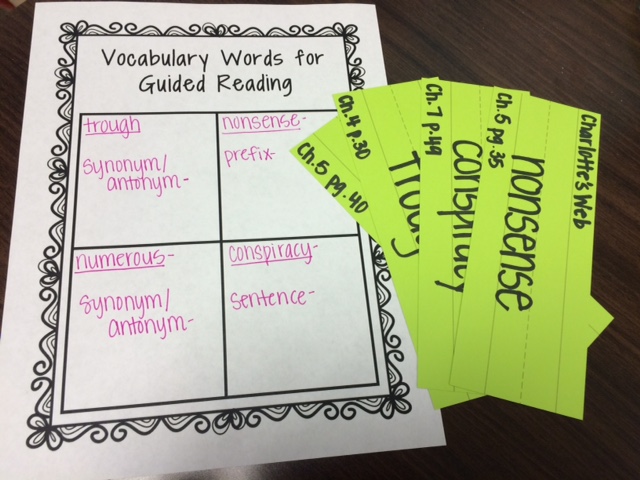 Vocabulary Words for
Guided Reading
trough
synonym/
antonym-
nonsense-
prefix-
numerous-
synonym/
antonym-
conspiracy-
sentence-
Ch. 5 pg. 40
Ch. 4 p. 30
troug
Ch. 7 p. 49
conspiracy
Ch. 5 pg. 35
nonsense
Charlotte's Web